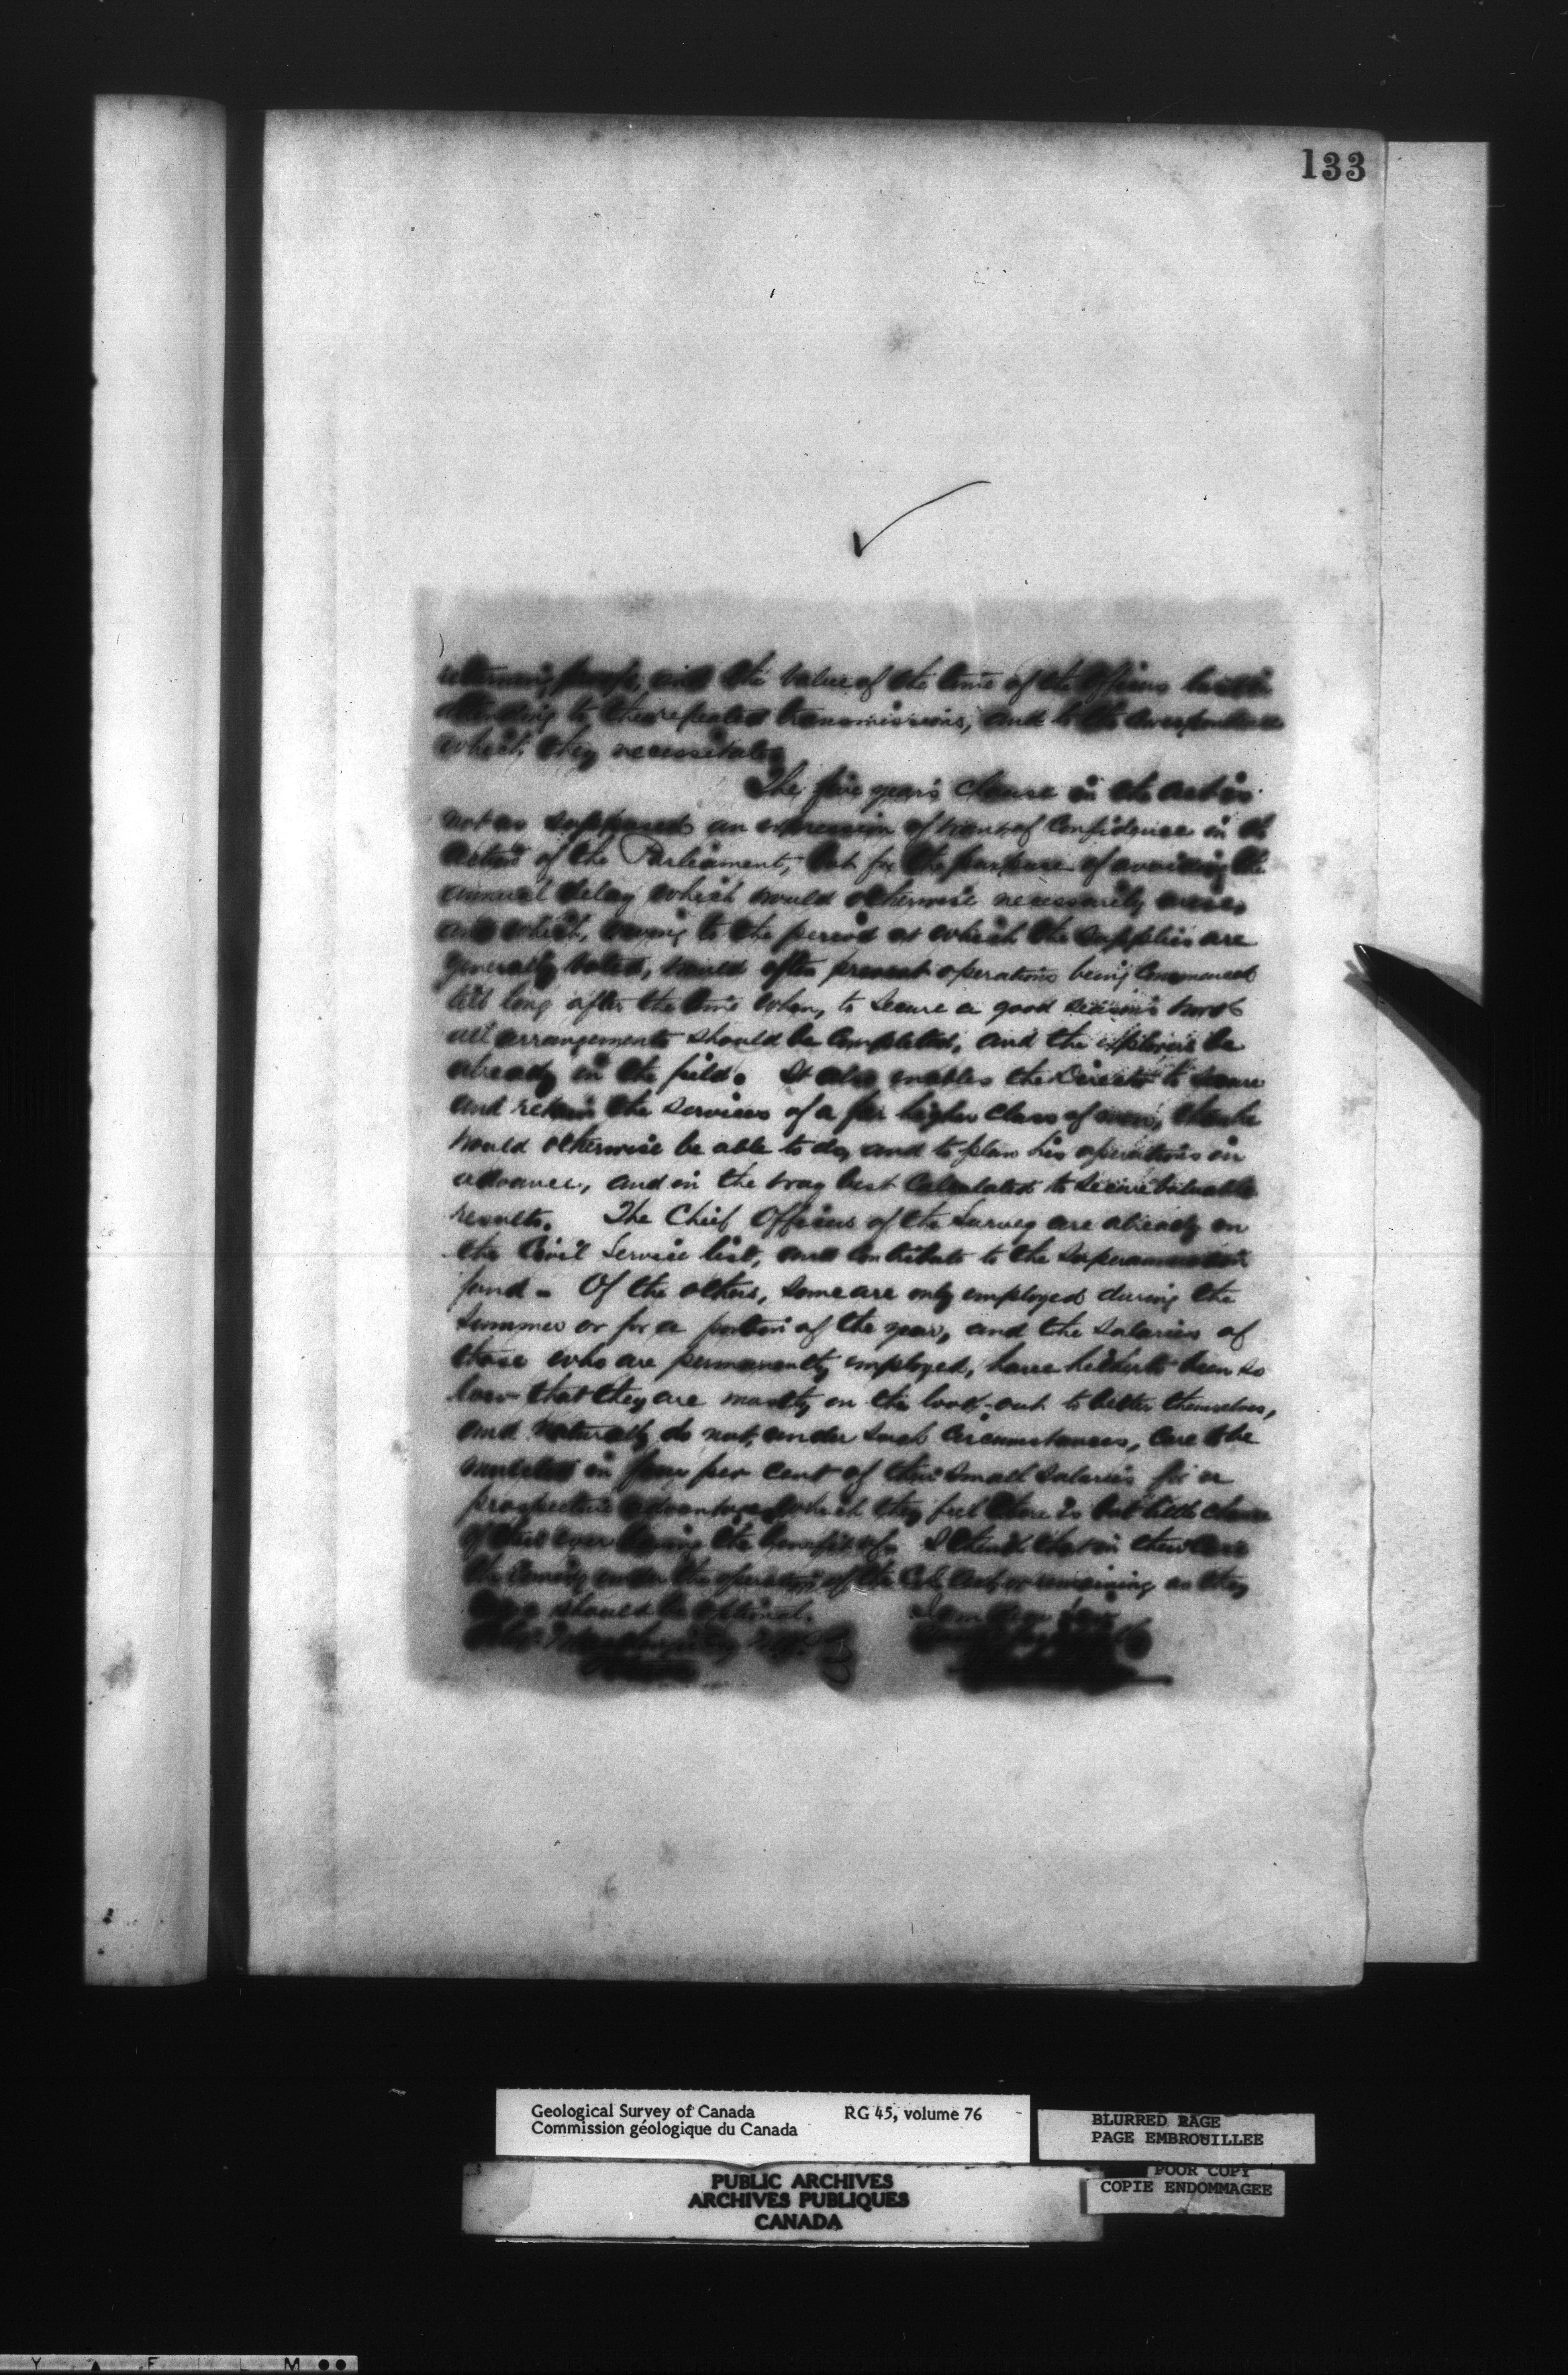 133
returning proofs, and the value of the time of the Officers both in
attending to these repeated transmissions, and to the correspondence
which they necessitate.
The five years clause in the Act is
not as supposed an expression of want of confidence in the
action of the Parliament, but for the purpose of avoiding the
annual delay which would otherwise necessarily arise,
and which, owing to the period at which the supplies are
generally voted, would often prevent operations being commenced
till long after the time when, to secure a good season's work
all arrangements should be completed, and the explorers be
already in the field. It also enables the Director to secure
and retain the services of a far higher class of men, than he
would otherwise be able to do, and to plan his operations in
advance, and in the way best calculated to secure valuable
results. The Chief Officers of the Survey are already on
the Civil Service list, and contribute to the Superannuation
fund. Of the others, some are only employed during the
Summer or for a portion of the year, and the salaries of
those who are permanently employed, have hitherto been so
low that they are mostly on the look-out to better themselves,
and naturally do not, under such circumstances, care to be
mulcted in four per cent of their small salaries for a
prospective advantage which they feel there is but little chance
of their ever having the benefit of. I think that in their case
the coming under the operation of the Act, or remaining as they
are should be optional.
I am dear Sir
Geological Survey of Canada RG 45, volume 76
Commission géologique du Canada
BLURRED PAGE
PAGE EMBROUILLEE
POOR COPY
COPIE ENDOMMAGEE
PUBLIC ARCHIVES
ARCHIVES PUBLIQUES
CANADA